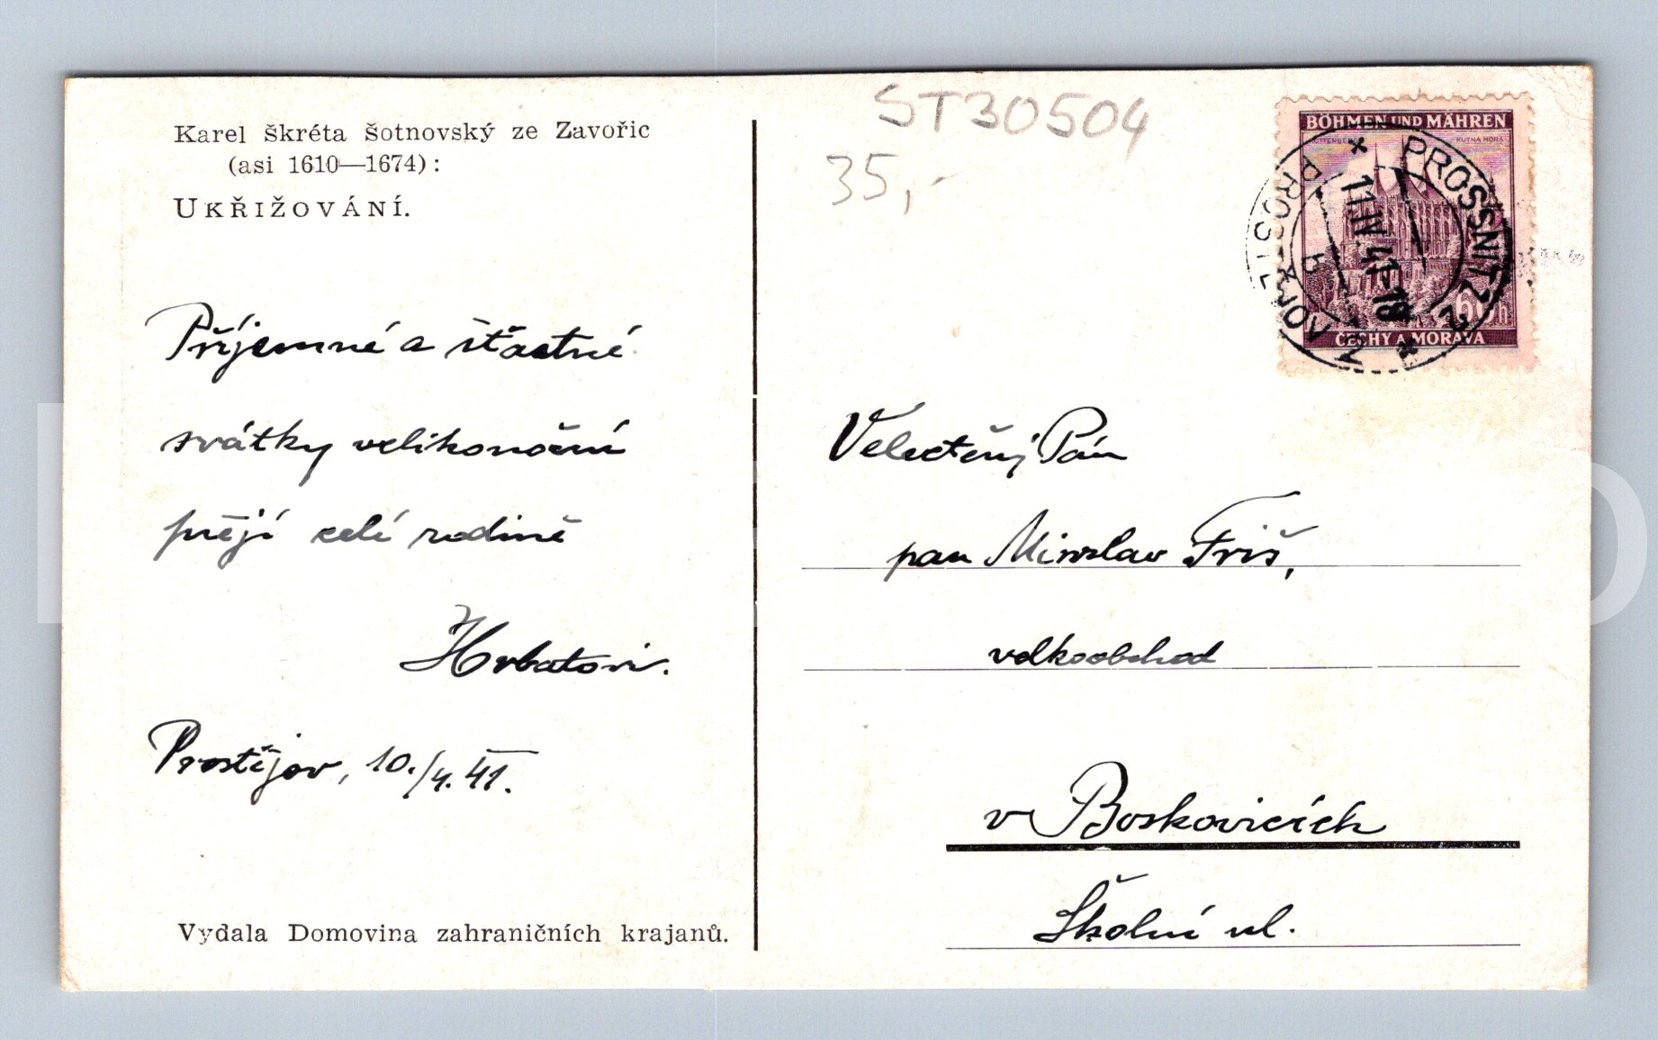 Karel Škréta Šotnovský ze Zavořic
(asi 1610—1674):
UKŘIŽOVÁNÍ.
Příjemné a šťastné
svátky velikonoční
přejí celé rodině
Hrbatovi.
Prostějov, 10./4. 41.
Vydala Domovina zahraničních krajanů.
ST30504
35,-
BÖHMEN UND MÄHREN
KUTNÁ HORA
60h
ČECHY A MORAVA
PROSSNITZ 2
11.IV.41-18
PROSTĚJOV 2
Velectěný Pán
pan Miroslav Friš,
velkoobchod
v Boskovicích
Školní ul.